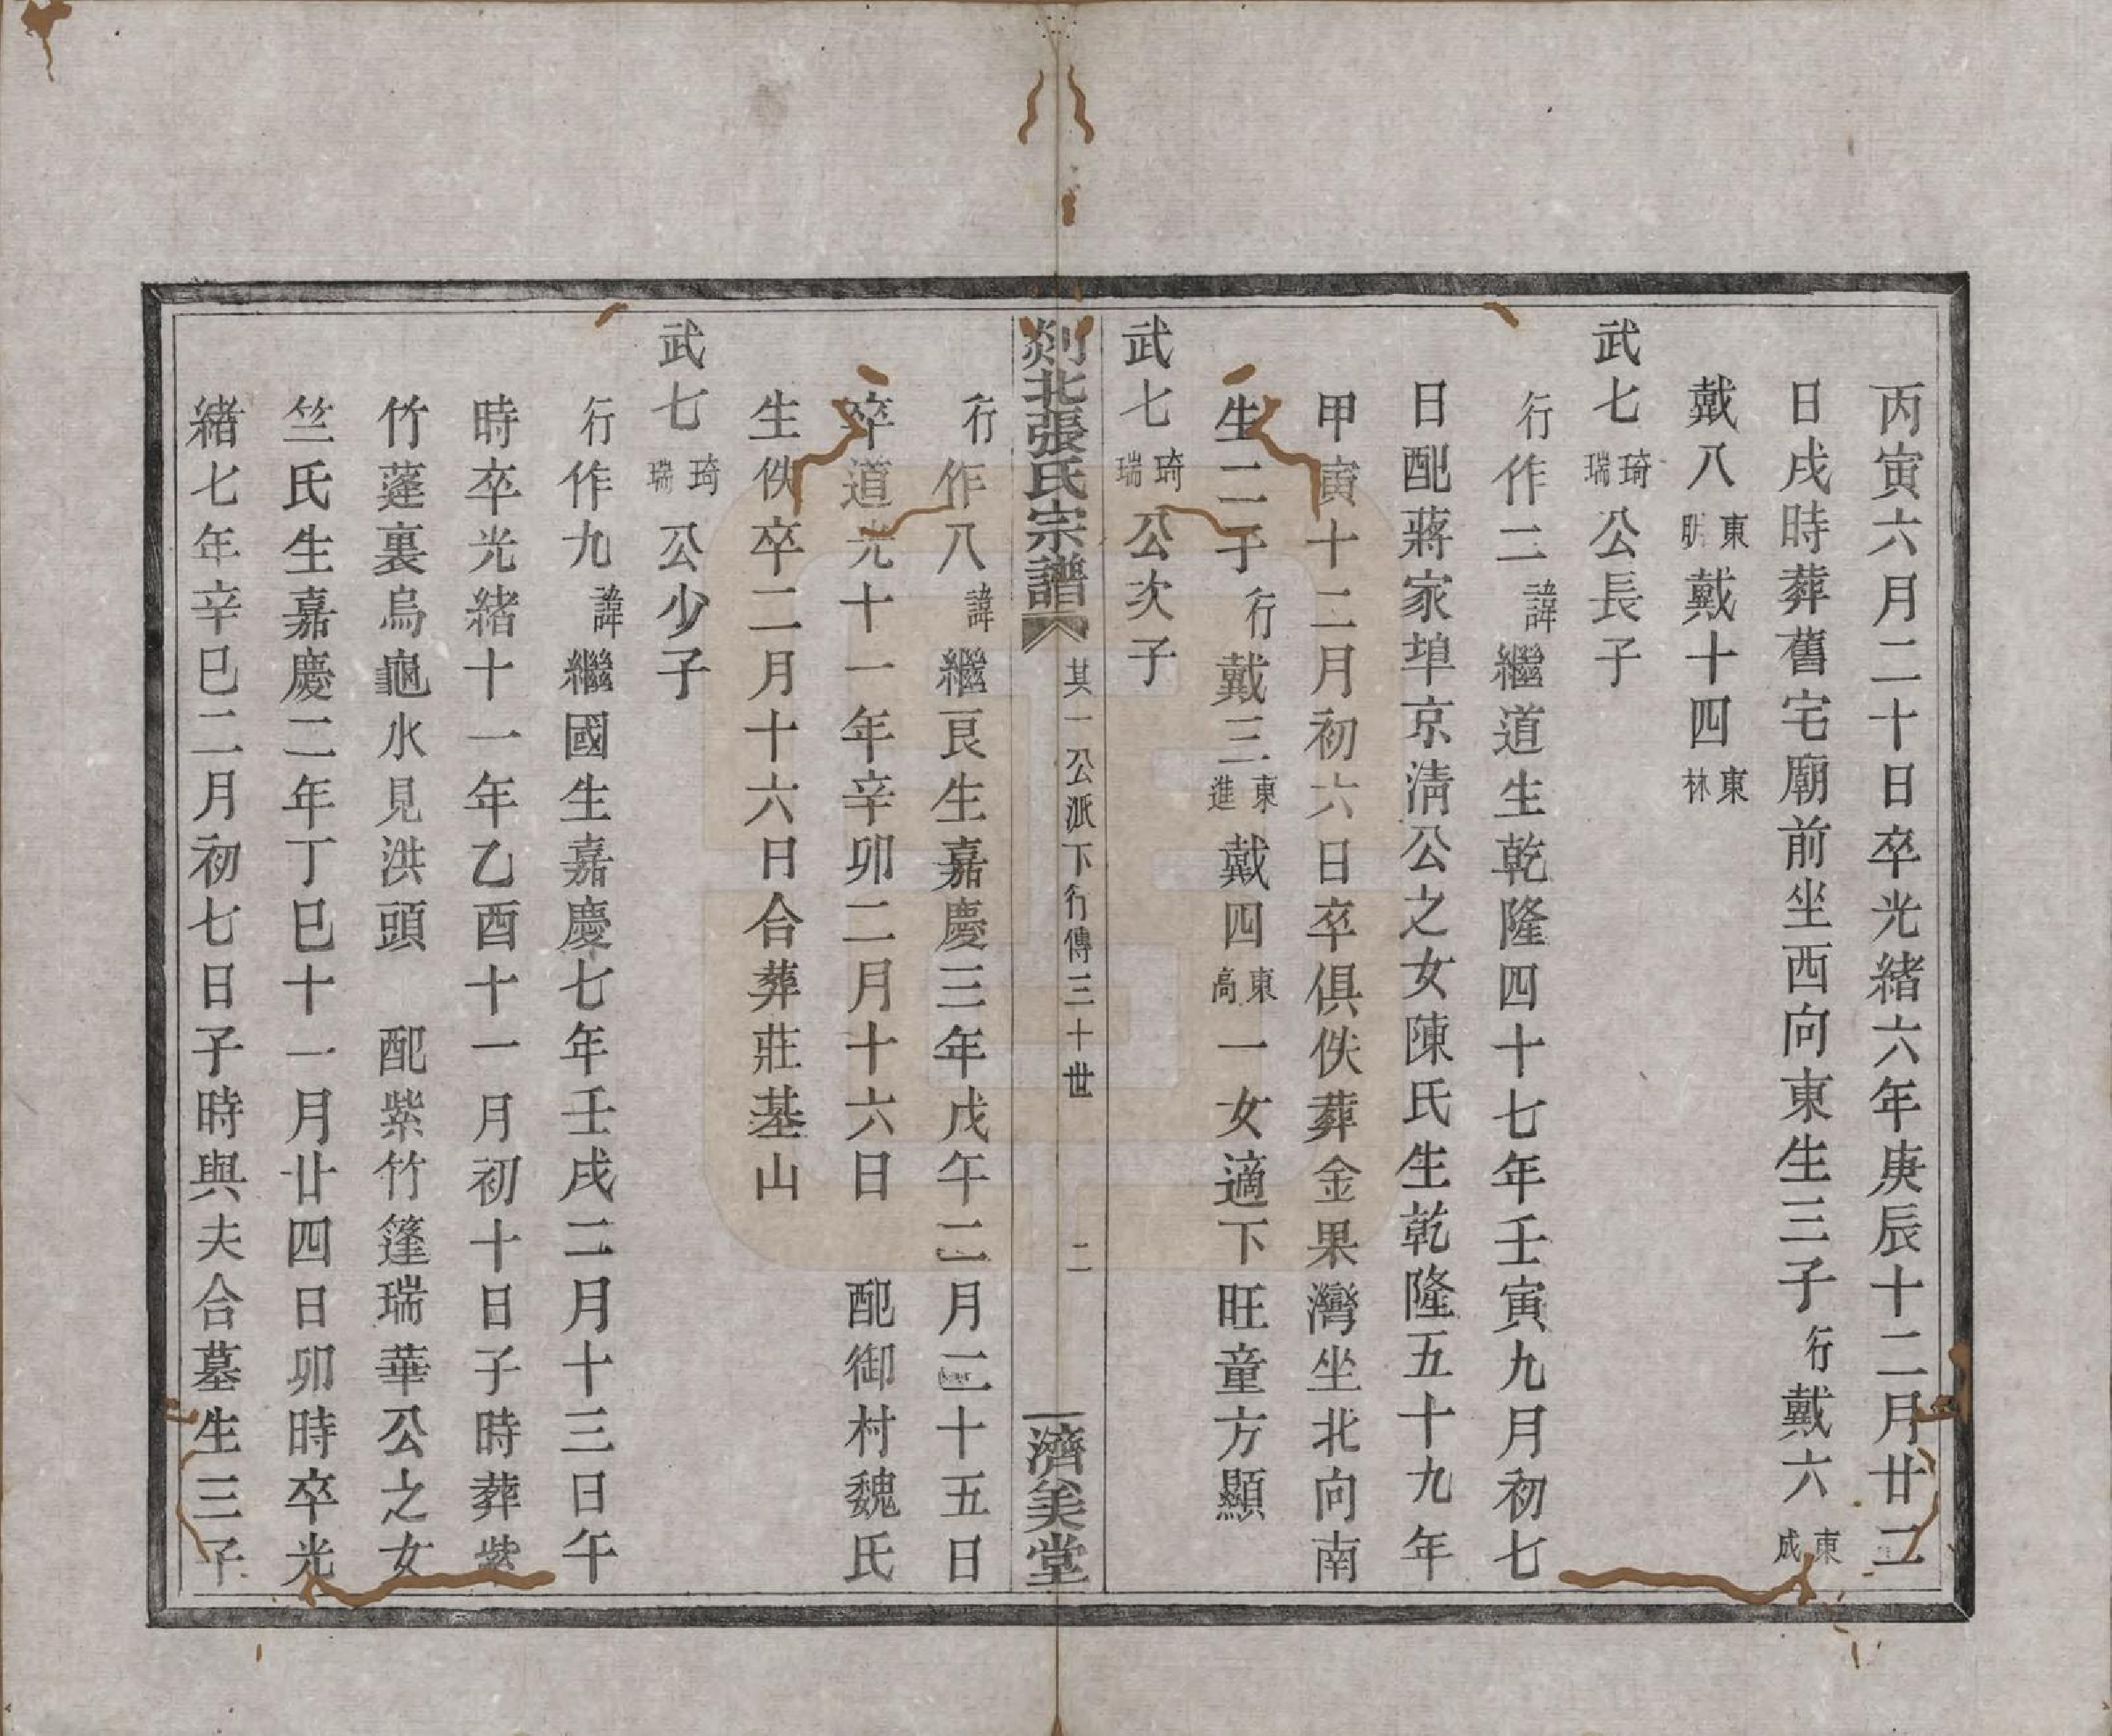 丙寅六月二十日卒光緒六年庚辰十二月廿二
日戌時葬舊宅廟前坐西向東生三子行戴六東成
戴八東明戴十四東林
武七琦瑞公長子
行作二諱繼道生乾隆四十七年壬寅九月初七
日配蔣家埠京淸公之女陳氏生乾隆五十九年
甲寅十二月初六日卒俱佚葬金果灣坐北向南
生二子行戴三東進戴四東高一女適下旺童方顯
武七琦瑞公次子
剡北張氏宗譜 其一公派下行傳三十世 二 一濟美堂
行作八諱繼艮生嘉慶三年戊午二月二十五日
卒道光十一年辛卯二月十六日 配御村魏氏
生佚卒二月十六日合葬莊基山
武七琦瑞公少子
行作九諱繼國生嘉慶七年壬戌二月十三日午
時卒光緒十一年乙酉十一月初十日子時葬紫
竹蓬裏烏龜水見洪頭 配紫竹篷瑞華公之女
竺氏生嘉慶二年丁巳十一月廿四日卯時卒光
緒七年辛巳二月初七日子時與夫合墓生三子